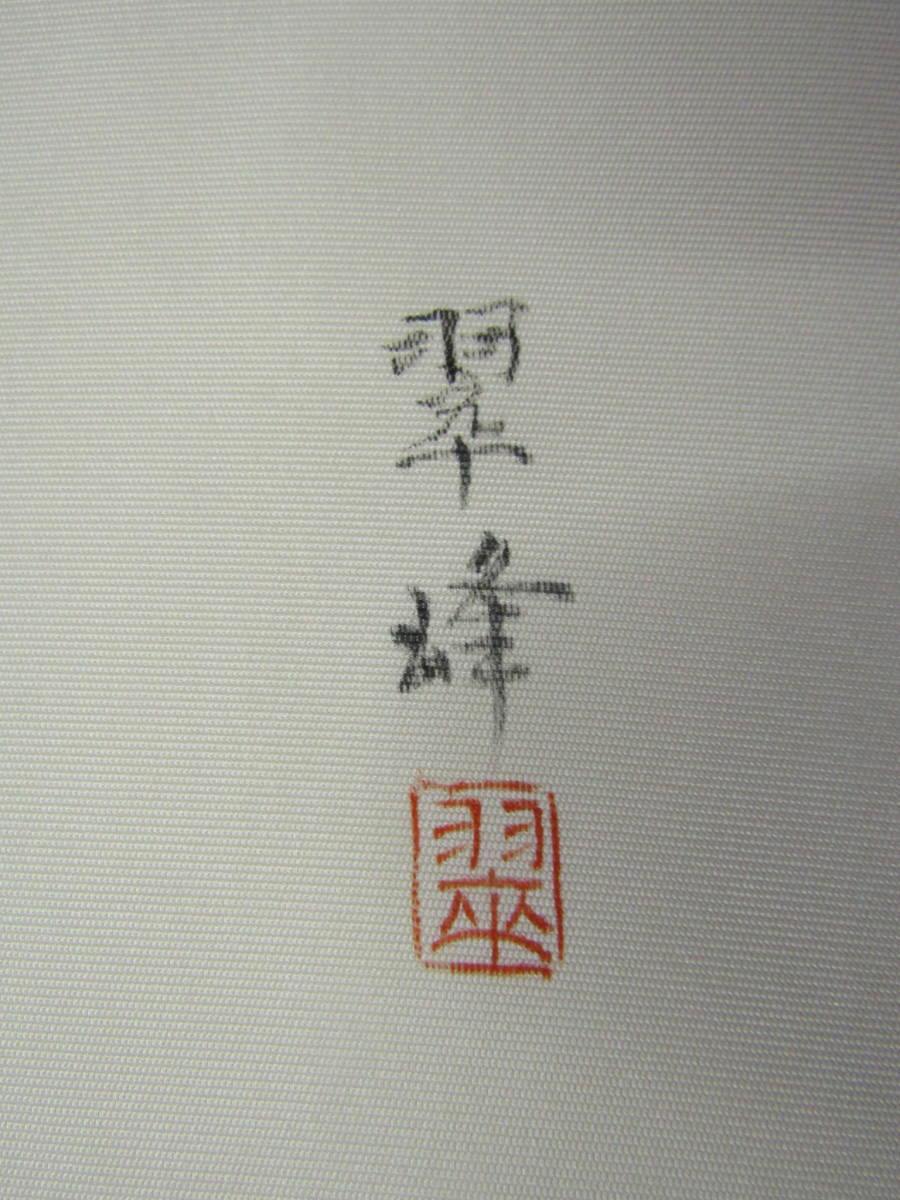 翠峰
翠